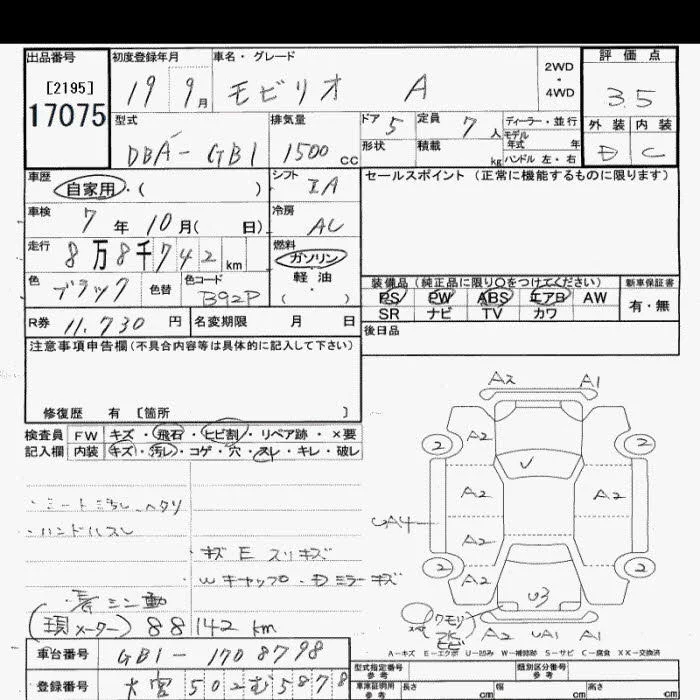 出品番号 初度登録年月 車名・グレード 2WD・4WD 評価点
[2195] 19 9月 モビリオ A 3.5
17075 型式 排気量 ドア 5 定員 7人 ディーラー・並行 外装 内装
モデル年式 年
DBA-GB1 1500cc 形状 積載 kg ハンドル 左・右 D C
車歴 自家用・( ) シフト IA セールスポイント(正常に機能するものに限ります)
車検 7年10月( 日) 冷房 AC
走行 8万8千742km 燃料 ガソリン・軽油・( )
色 ブラック 色替 色コード B92P 装備品(純正品に限り○をつけてください) 新車保証書
PS PW ABS エアB AW 有・無
SR ナビ TV カワ
R券 11,730円 名変期限 月 日 後日品
注意事項申告欄(不具合内容等は具体的に記入して下さい)
修復歴 有 [箇所 ]
検査員 FW キズ・飛石・ヒビ割・リペア跡・×要
記入欄 内装 キズ・汚レ・コゲ・穴・スレ・キレ・破レ
A2 A1
2 A2 2
A2 A2
UA4 A2
2 A2 2
U3
・シート汚レ ヘタリ
・ハンドルスレ
・キズ E スリキズ
Wキャップ・Dミラーキズ
(現メーター) 88142km
クモリ
A2 UA1 A1
A-キズ E-エクボ U-凹み W-補修跡 S-サビ C-腐食 XX-交換済
車台番号 GB1-1708798 型式指定番号 類別区分番号
登録番号 大宮502む5878 車庫証明用参考 長さ cm 幅 cm 高さ cm